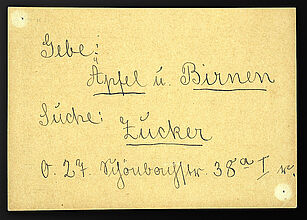 Gebe:
Äpfel u. Birnen
Suche:
Zucker
O. 27. Schönbachstr. 38ª I r.